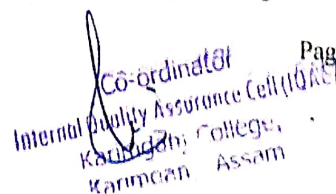 Pag
Co-ordinator
Internal Quality Assurance Cell (IQAC)
Karimganj College,
Karimganj Assam